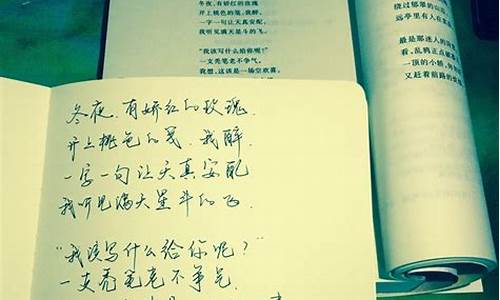 冬夜，有娇红的玫瑰
开上桃色的笺，我醉，
一字一句让天真安配，
我听见满天星斗的飞。
“我该写什么给你呢？”
一支秃笔老不争气，
我想，这该是一场空欢喜，
绕过郁翠的山
远亭里有人在
最是那迷人的
看，乱鸦正点
一顶的小轿，
又赶着前路的
冬夜，有娇红的玫瑰，
开上桃色的笺，我醉，
一字一句让天真安配
我听见满天星斗的飞，
“我该写什么给你呢？”
一支秃笔老不争气，